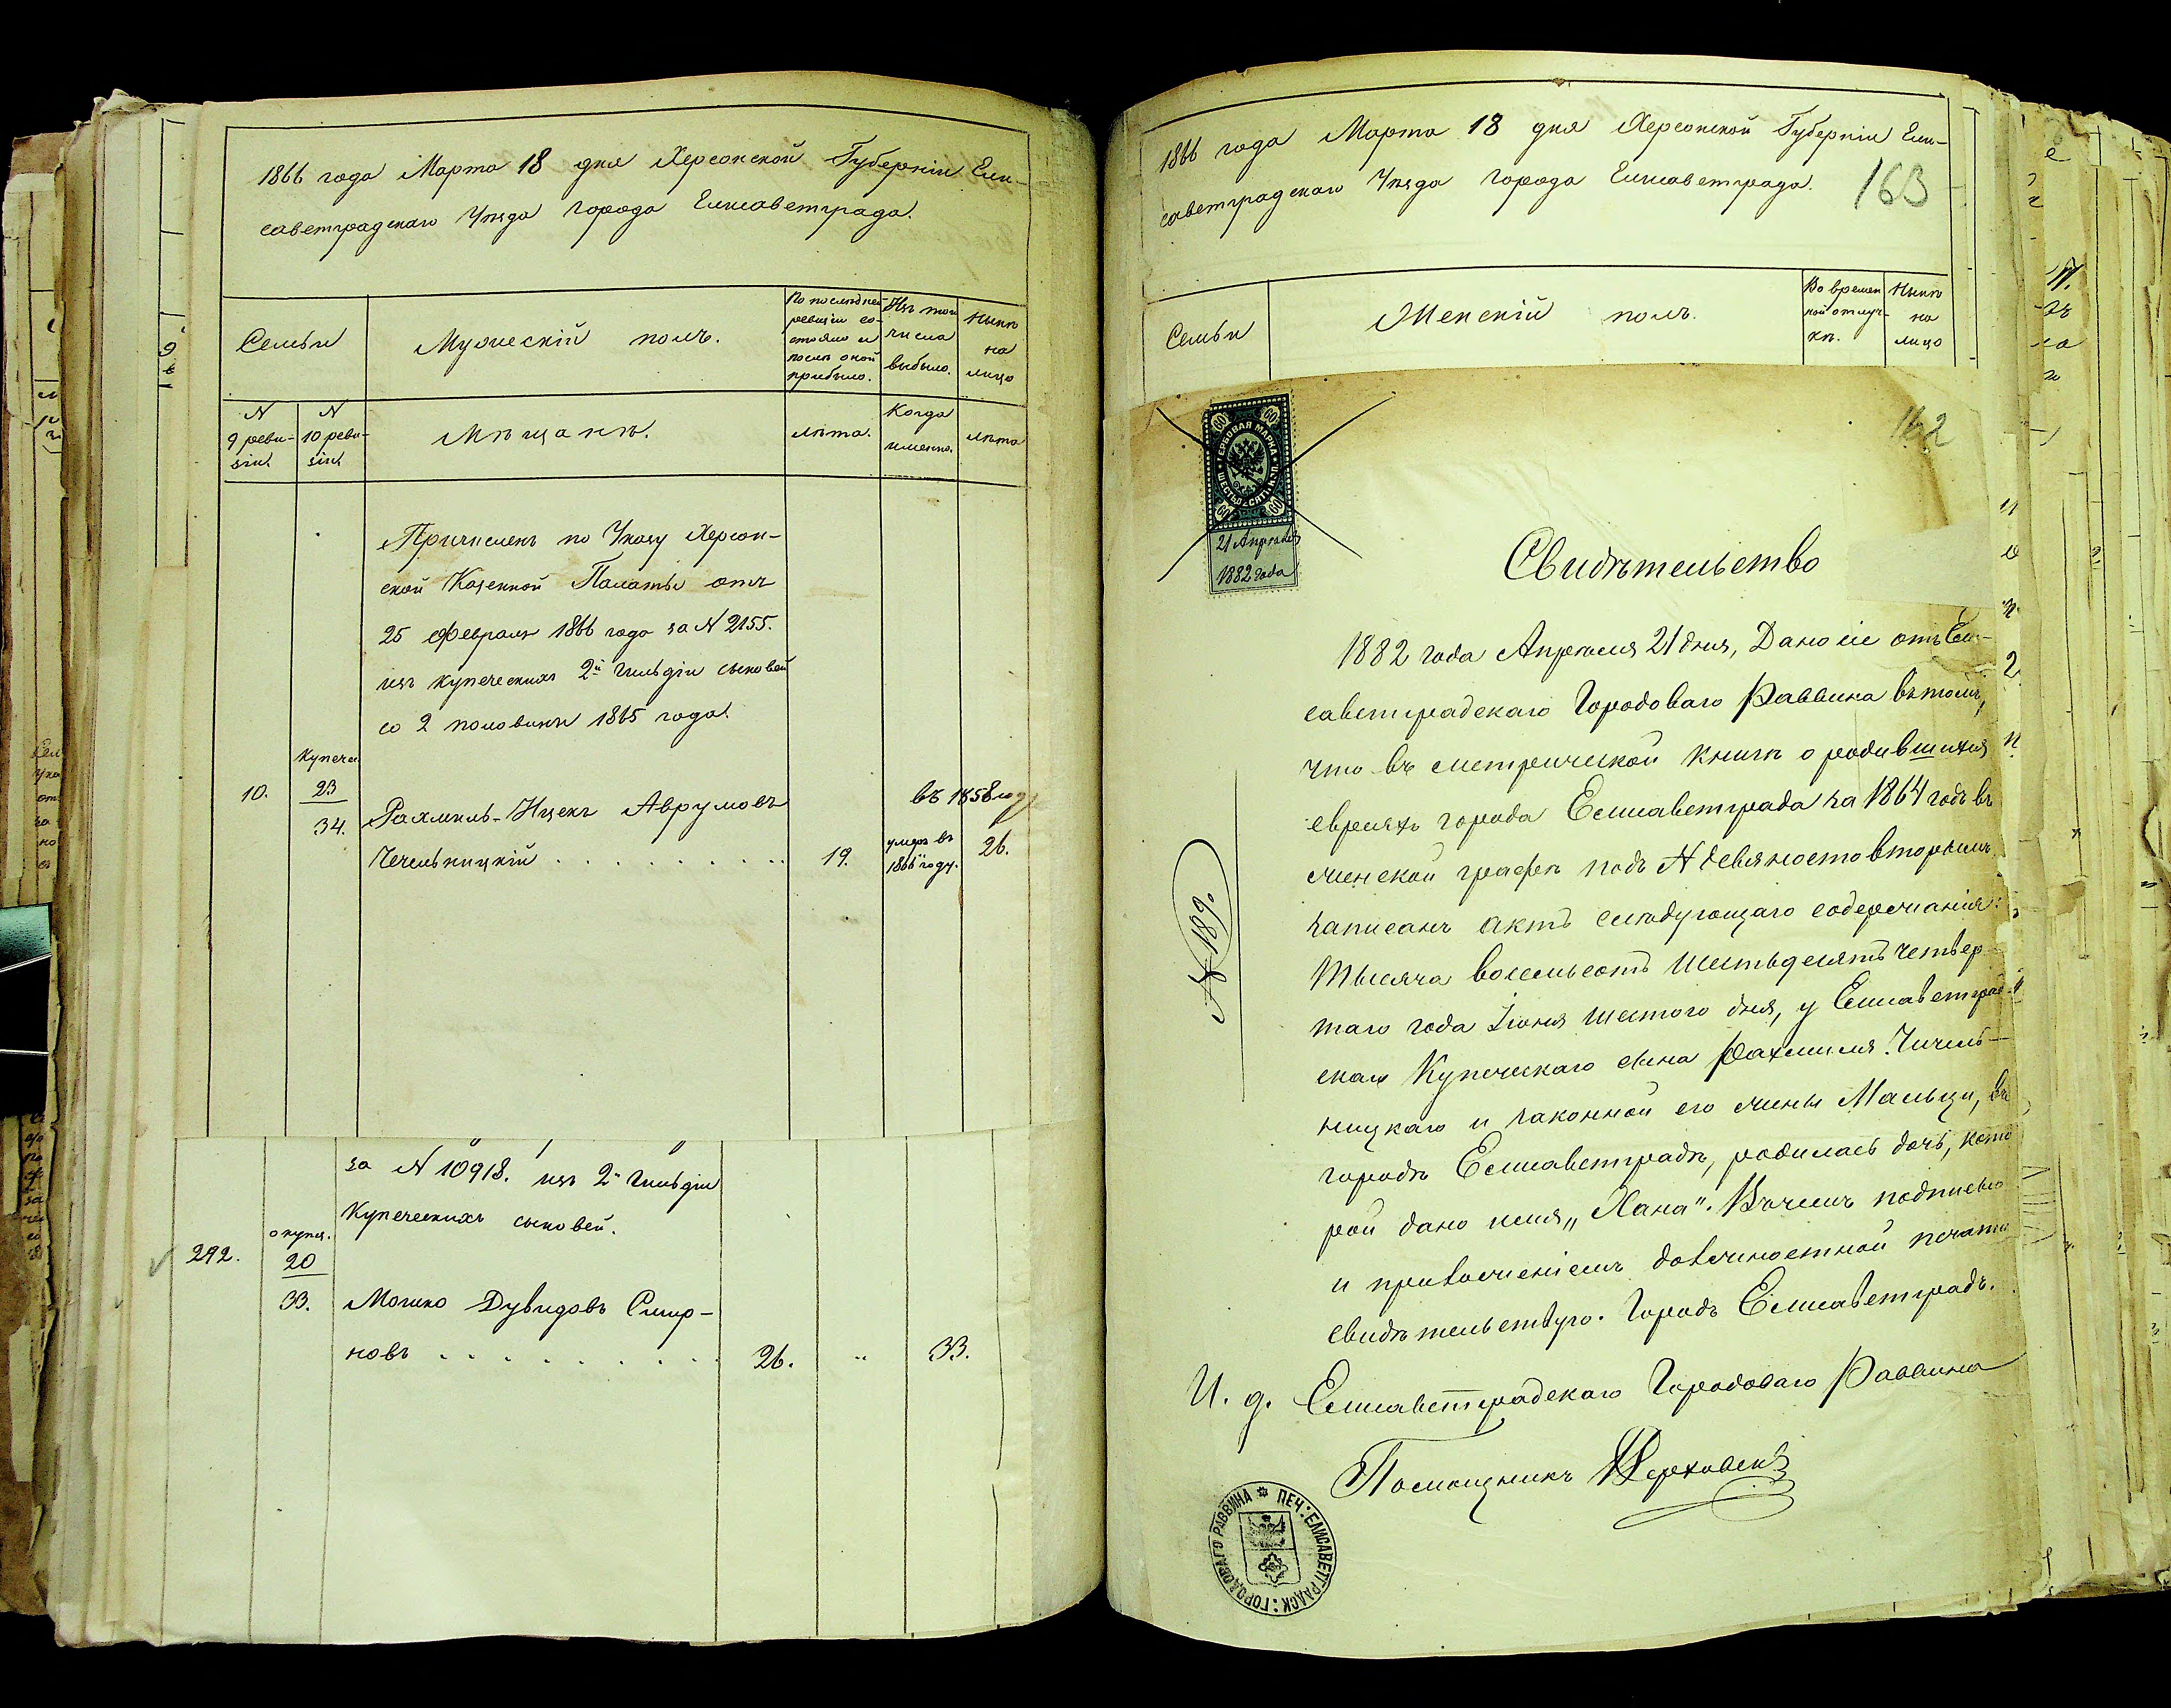 1866 года Марта 18 дня Херсонской Губерніи Ели-
саветградскаго Уѣзда города Елисаветграда.
Семьи
Мужескій полъ.
По последней
ревизіи со-
стояло и
послѣ оной
прибыло.
Изъ того
числа
выбыло.
Нынѣ
на
лицо
N
9 реви-
зіи.
N
10 реви-
зіи.
Мѣщанѣ.
лѣта.
Когда
именно.
лѣта
Причисленъ по Указу Херсон-
ской Казенной Палаты отъ
25 Февраля 1866 года за N 2155.
изъ купеческихъ 2й гильдіи сыновей
со 2 половины 1865 года.
купеч.
10.
23
34.
Рахмиль-Ицекъ Аврумовъ
Чечельницкій
19.
въ 1858 году
умеръ въ
1866 году.
26.
за N 10918. изъ 2й Гильдіи
Купеческихъ сыновей.
292.
о купц.
20
33.
Мошко Дувидовъ Смир-
новъ
26.
"
33.
1866 года Марта 18 дня Херсонской Губерніи Ели-
саветградскаго Уѣзда города Елисаветграда.
163
Семьи
Женскій полъ.
Во времен-
ной отлуч-
кѣ.
Нынѣ
на
лицо
162
60 60
ГЕРБОВАЯ МАРКА
ШЕСТЬДЕСЯТЪ КОП.
60 60
21 Апрѣля
1882 года
Свидѣтельство
1882 года Апрѣля 21 дня, Дано сіе отъ Ели-
саветградскаго Городоваго Раввина въ томъ,
что въ метрической книгѣ о родившихся
евреяхъ города Елисаветграда за 1864 годъ въ
женской графѣ подъ N девяносто вторымъ
записанъ актъ слѣдующаго содержанія:
Тысяча восемьсотъ шестьдесятъ четвер-
таго года Іюня шестого дня, у Елисаветград-
скаго Купеческаго сына Рахмиля Чичель-
ницкаго и законной его жины Мальци, въ
городѣ Елисаветградѣ, родилась дочь, кото
рой дано имя „Хана". Въ чемъ подписью
и приложеніемъ должностной печати
свидѣтельствую. Городъ Елисаветградъ.
И. д. Елисаветградскаго Городоваго Раввина
Помощникъ
N 189.
ПЕЧ: ЕЛИСАВЕТГРАДСК: ГОРОДОВАГО РАВВИНА